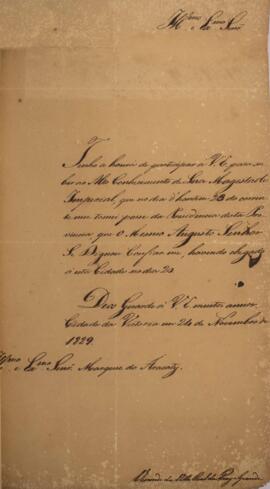 Illmo e Exmo Senr
Tenho a honra de participar a V. E. para su-
bir ao Alto Conhecimento de Sua Magestade
Imperial, que no dia d'hontem 23 do corren-
te mez tomei posse da Presidencia desta Pro-
vincia que O Mesmo Augusto Senhor
S. Dignou Confiar-me, havendo chegado
a esta Cidade no dia 20
Deos Guarde a V. E. muitos annos.
Cidade da Victoria em 24 de Novembro de
1829.
Illmo e Exmo Senr Marquez do Aracaty
Visconde da Villa Real da Praia Grande